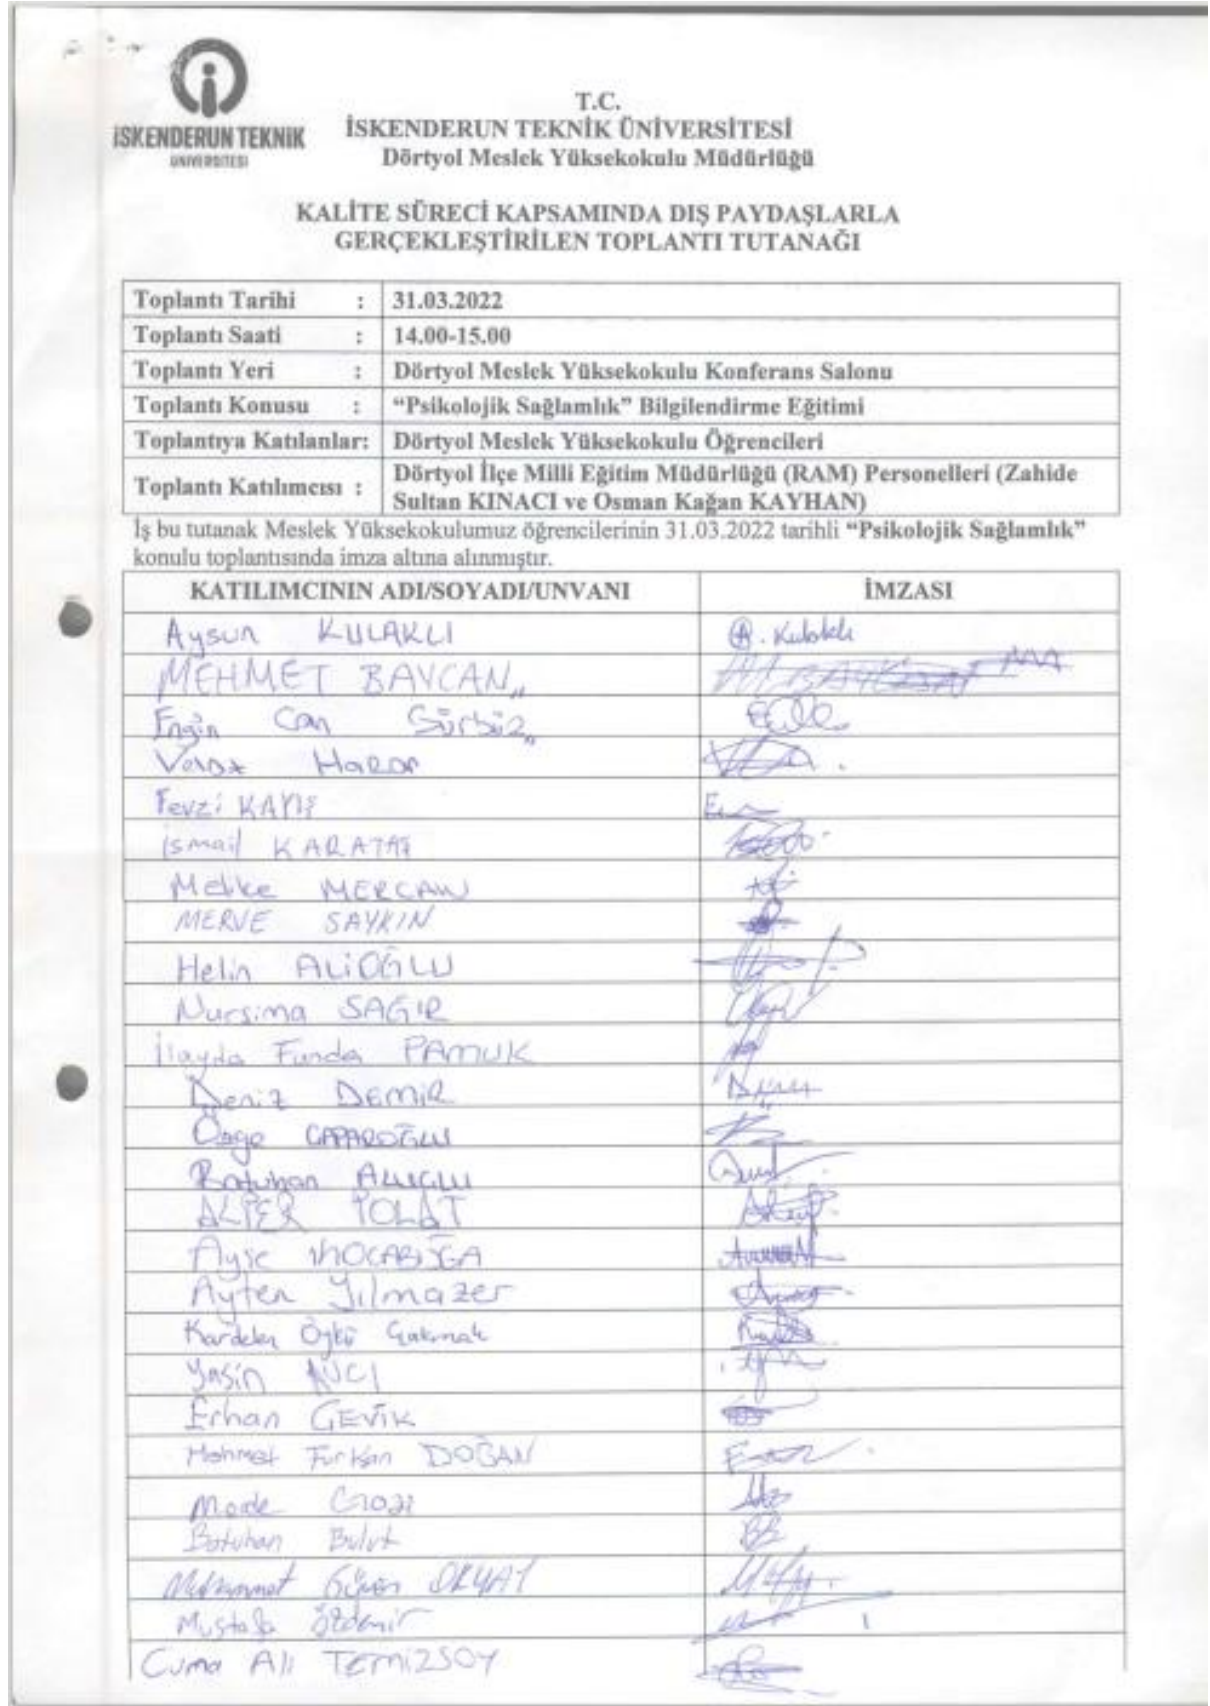 İSKENDERUN TEKNİK
ÜNİVERSİTESİ
T.C.
İSKENDERUN TEKNİK ÜNİVERSİTESİ
Dörtyol Meslek Yüksekokulu Müdürlüğü
KALİTE SÜRECİ KAPSAMINDA DIŞ PAYDAŞLARLA
GERÇEKLEŞTİRİLEN TOPLANTI TUTANAĞI
Toplantı Tarihi : 31.03.2022
Toplantı Saati : 14.00-15.00
Toplantı Yeri : Dörtyol Meslek Yüksekokulu Konferans Salonu
Toplantı Konusu : “Psikolojik Sağlamlık” Bilgilendirme Eğitimi
Toplantıya Katılanlar: Dörtyol Meslek Yüksekokulu Öğrencileri
Toplantı Katılımcısı : Dörtyol İlçe Milli Eğitim Müdürlüğü (RAM) Personelleri (Zahide
Sultan KINACI ve Osman Kağan KAYHAN)
İş bu tutanak Meslek Yüksekokulumuz öğrencilerinin 31.03.2022 tarihli “Psikolojik Sağlamlık”
konulu toplantısında imza altına alınmıştır.
KATILIMCININ ADI/SOYADI/UNVANI İMZASI
Aysun KULAKLI A. Kulaklı
MEHMET BAYCAN
Engin Can Gürbüz
Fevzi KAYIŞ
İsmail KARATAŞ
Melike MERCAN
MERVE SAYKIN
Helin ALİOĞLU
Nursima SAĞIR
İlayda Funda PAMUK
Deniz DEMİR
Özge
Batuhan
ALPER POLAT
Ayşe
Ayten Yılmazer
Kardelen Öykü Çakmak
Yasin AVCI
Erhan ÇEVİK
Mehmet Furkan DOĞAN
Batuhan Bulut BB
Muhammet
Mustafa Özdemir
Cuma Ali TEMİZSOY